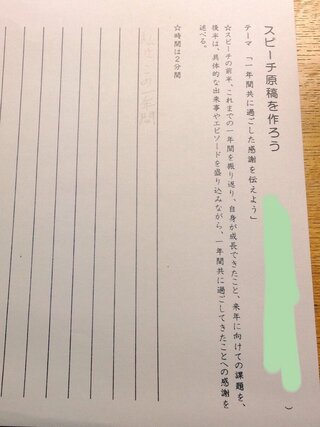 スピーチ原稿を作ろう
テーマ 「一年間共に過ごした感謝を伝えよう」
☆スピーチの前半、これまでの一年間を振り返り、自身が成長できたこと、来年に向けての課題を、
後半は、具体的な出来事やエピソードを盛り込みながら、一年間共に過ごしてきたことへの感謝を
述べる。
☆時間は2分間
)